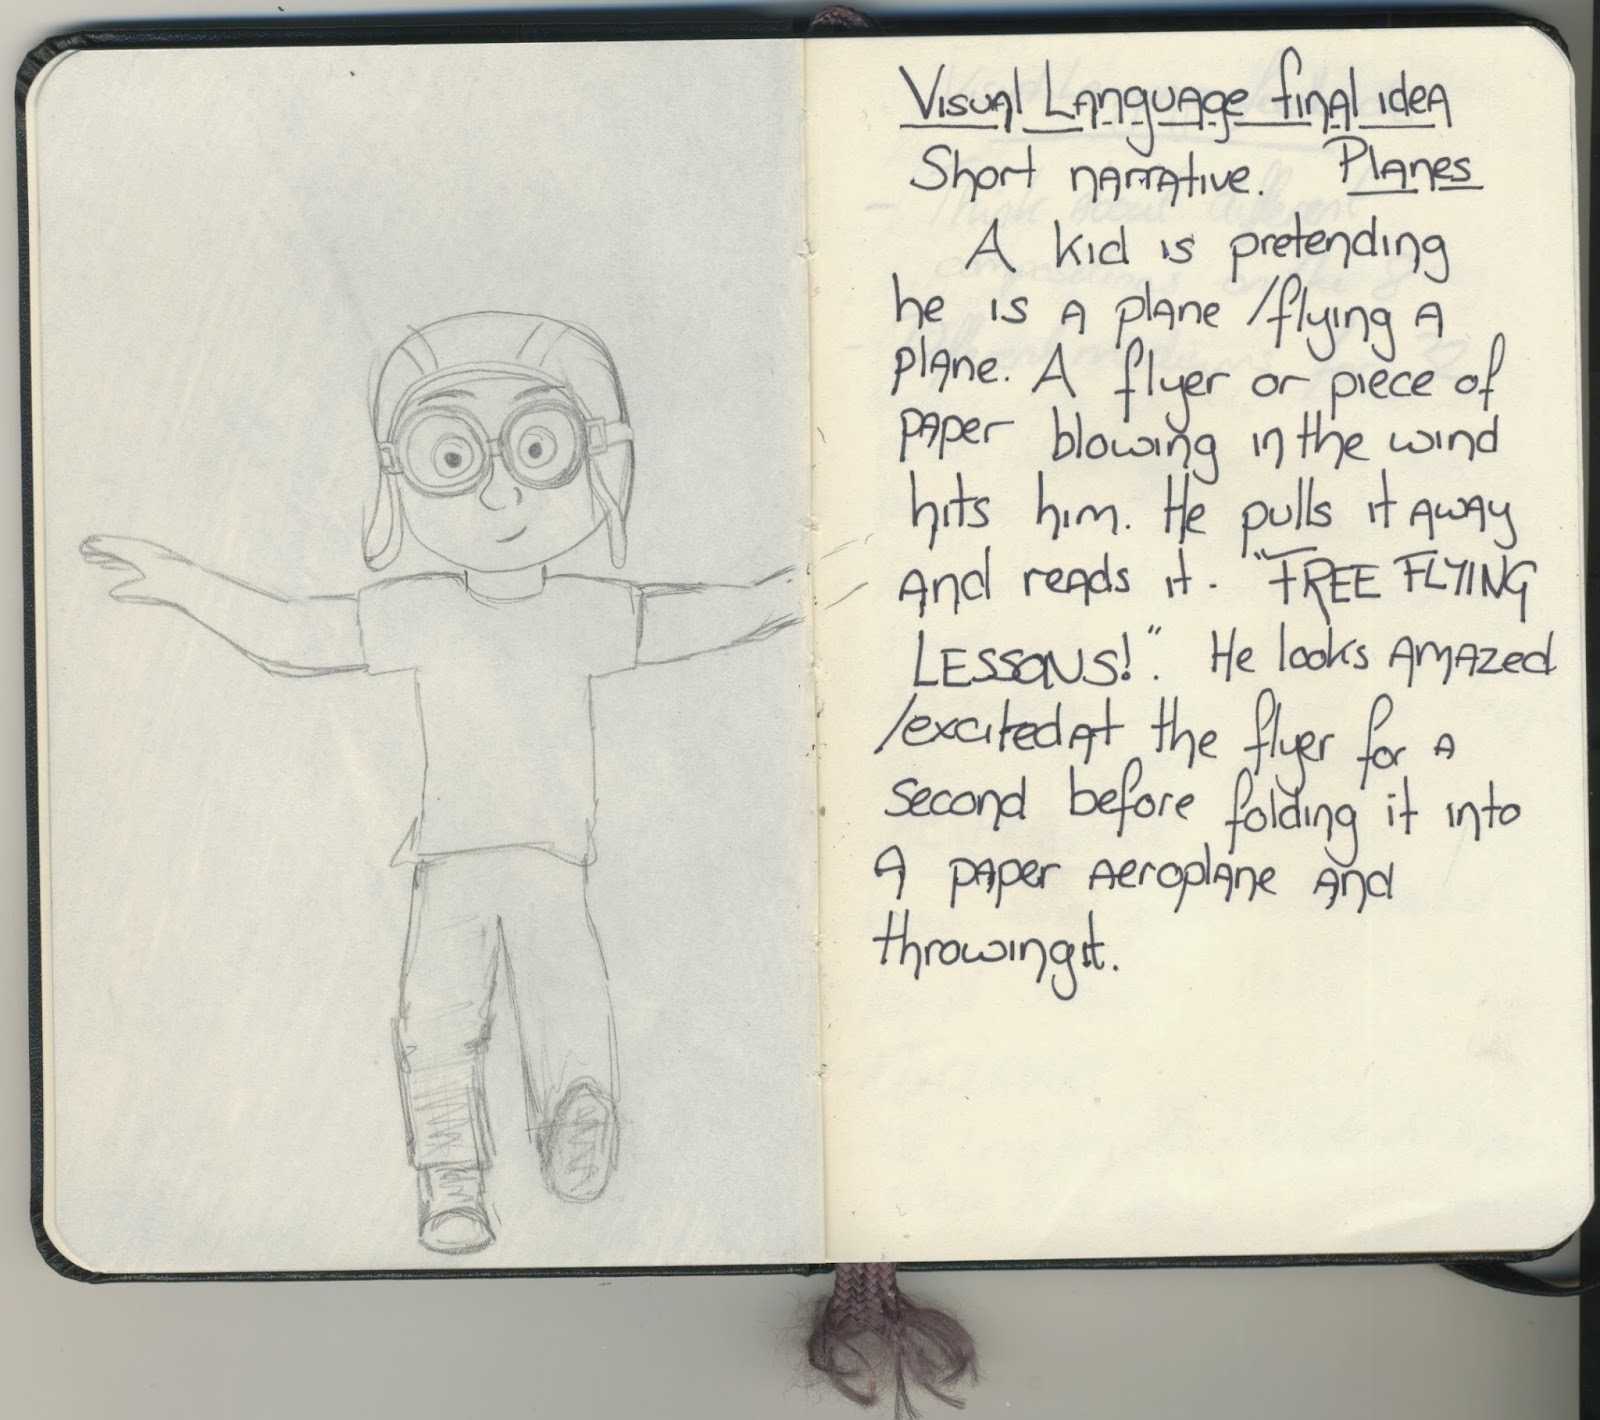 Visual Language final idea
Short narrative. Planes
A kid is pretending
he is a plane /flying a
plane. A flyer or piece of
paper blowing in the wind
hits him. He pulls it away
and reads it. "FREE FLYING
LESSONS!". He looks amazed
/excited at the flyer for a
second before folding it into
a paper aeroplane and
throwing it.